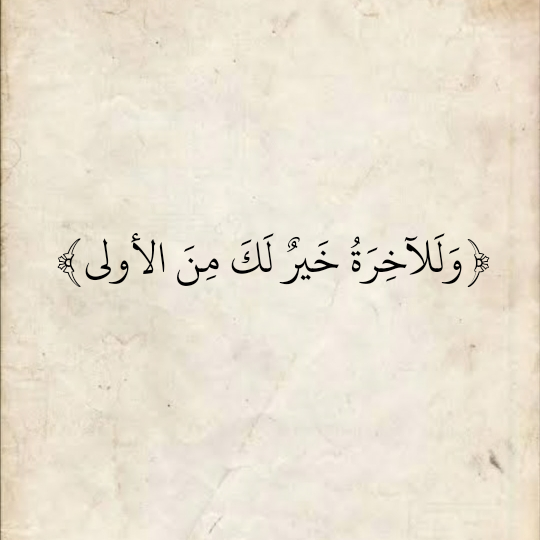 ﴿وَلَلآخِرَةُ خَيرٌ لَكَ مِنَ الأولى﴾